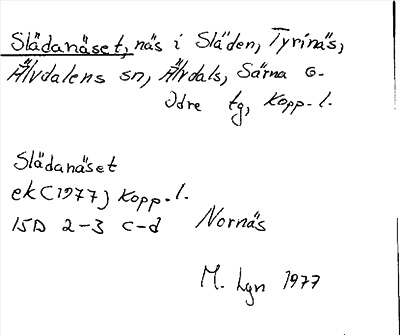 Slädanäset, näs i Släden, Tyrinäs,
Älvdalens sn, Älvdals, Särna o.
Idre tg, Kopp. l.
Slädanäset
ek (1977) Kopp. l.
15D 2-3 c-d
Nornäs
M. Lgn 1977